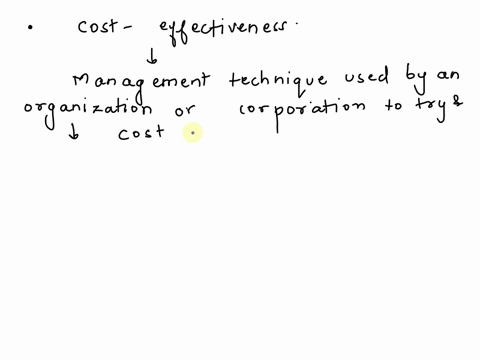 • cost - effectiveness.
↓
Management technique used by an
organization or corporation to try &
↓ cost